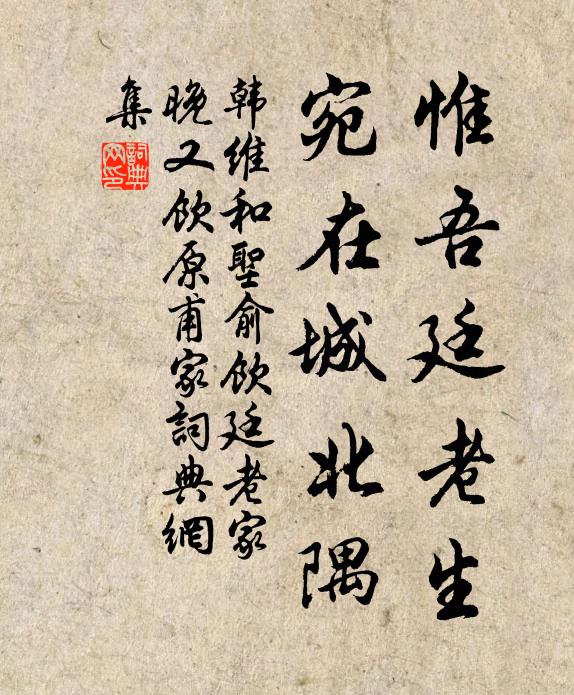 惟吾廷老生
宛在城北隅
韩維和聖俞飲廷老家
晚又飲原甫家詞典網
集
詞典
网印